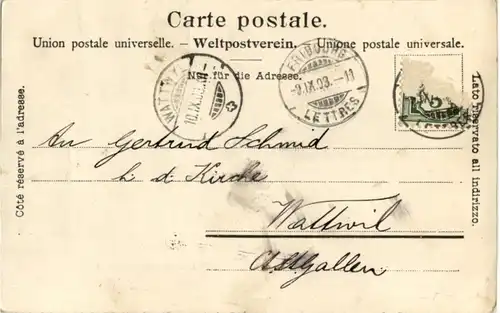 Carte postale.
Union postale universelle. – Weltpostverein. – Unione postale universale.
Nur für die Adresse.
FRIBOURG
9.IX.03.–11
LETTRES
WATTWIL
10.IX.03.
5
LETTRES
Côté réservé à l'adresse.
Lato riservato all indirizzo.
An Gertrud Schmid
b. d. Kirche
Wattwil
Ct. St. Gallen